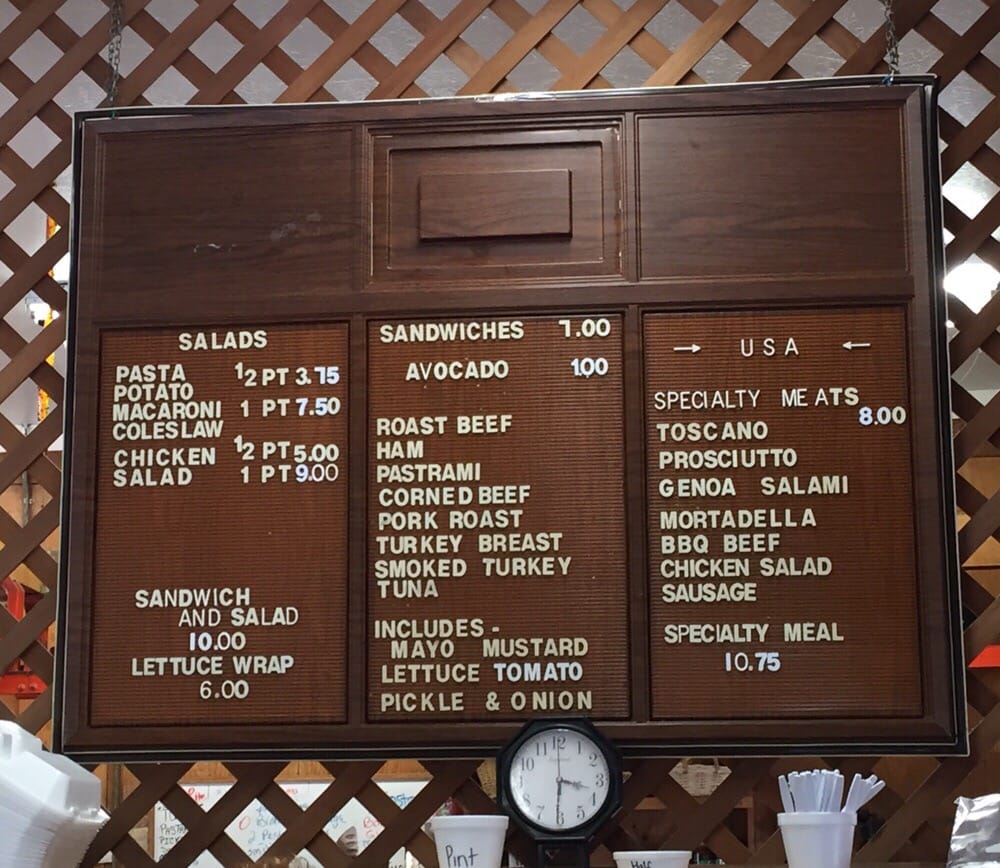 SALADS
PASTA 1/2 PT 3.75
POTATO
MACARONI 1 PT 7.50
COLESLAW
CHICKEN 1/2 PT 5.00
SALAD 1 PT 9.00
SANDWICH
AND SALAD
10.00
LETTUCE WRAP
6.00
SANDWICHES 7.00
AVOCADO 1.00
ROAST BEEF
HAM
PASTRAMI
CORNED BEEF
PORK ROAST
TURKEY BREAST
SMOKED TURKEY
TUNA
INCLUDES -
MAYO MUSTARD
LETTUCE TOMATO
PICKLE & ONION
→ USA ←
SPECIALTY MEATS
8.00
TOSCANO
PROSCIUTTO
GENOA SALAMI
MORTADELLA
BBQ BEEF
CHICKEN SALAD
SAUSAGE
SPECIALTY MEAL
10.75
12 1 2 3 4 5 6 7 8 9 10 11
Pint
Half